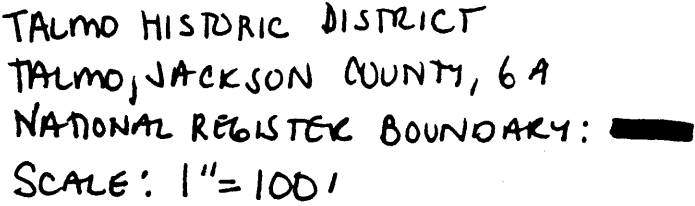 TALMO HISTORIC DISTRICT
TALMO, JACKSON COUNTY, GA
NATIONAL REGISTER BOUNDARY:
SCALE: 1"=100'